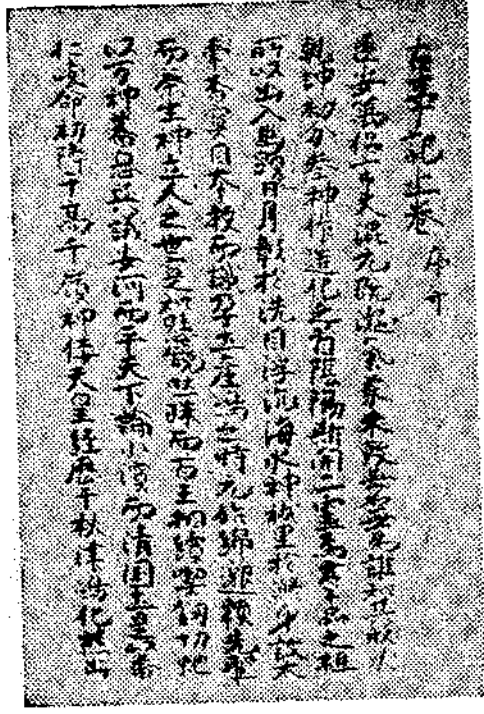 古事記上卷 序并
臣安萬侶言夫混元既凝氣象未效無名無為誰知其形然
乾坤初分參神作造化之首陰陽斯開二靈為群品之祖
所以出入幽顯日月彰於洗目浮沈海水神祇呈於滌身故太
素杳冥因本教而識孕土產嶋之時元始綿邈頼先聖
而察生神立人之世寔知懸鏡吐珠而百王相續喫釼切蛇
以万神蕃息與議安河而平天下論小濱而清國土是以番
仁岐命初降于高千嶺神倭天皇經歷于秋津嶋化熊出